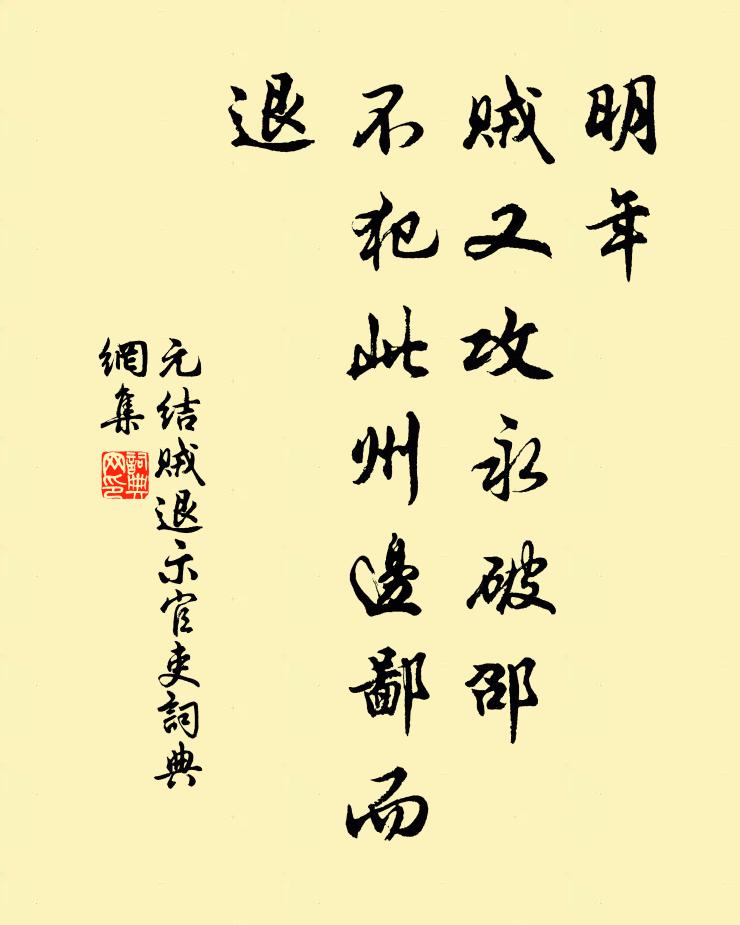 明年
賊又攻永破邵
不犯此州邊鄙而
退
元结賊退示官吏詞典
網集
詞典
网印